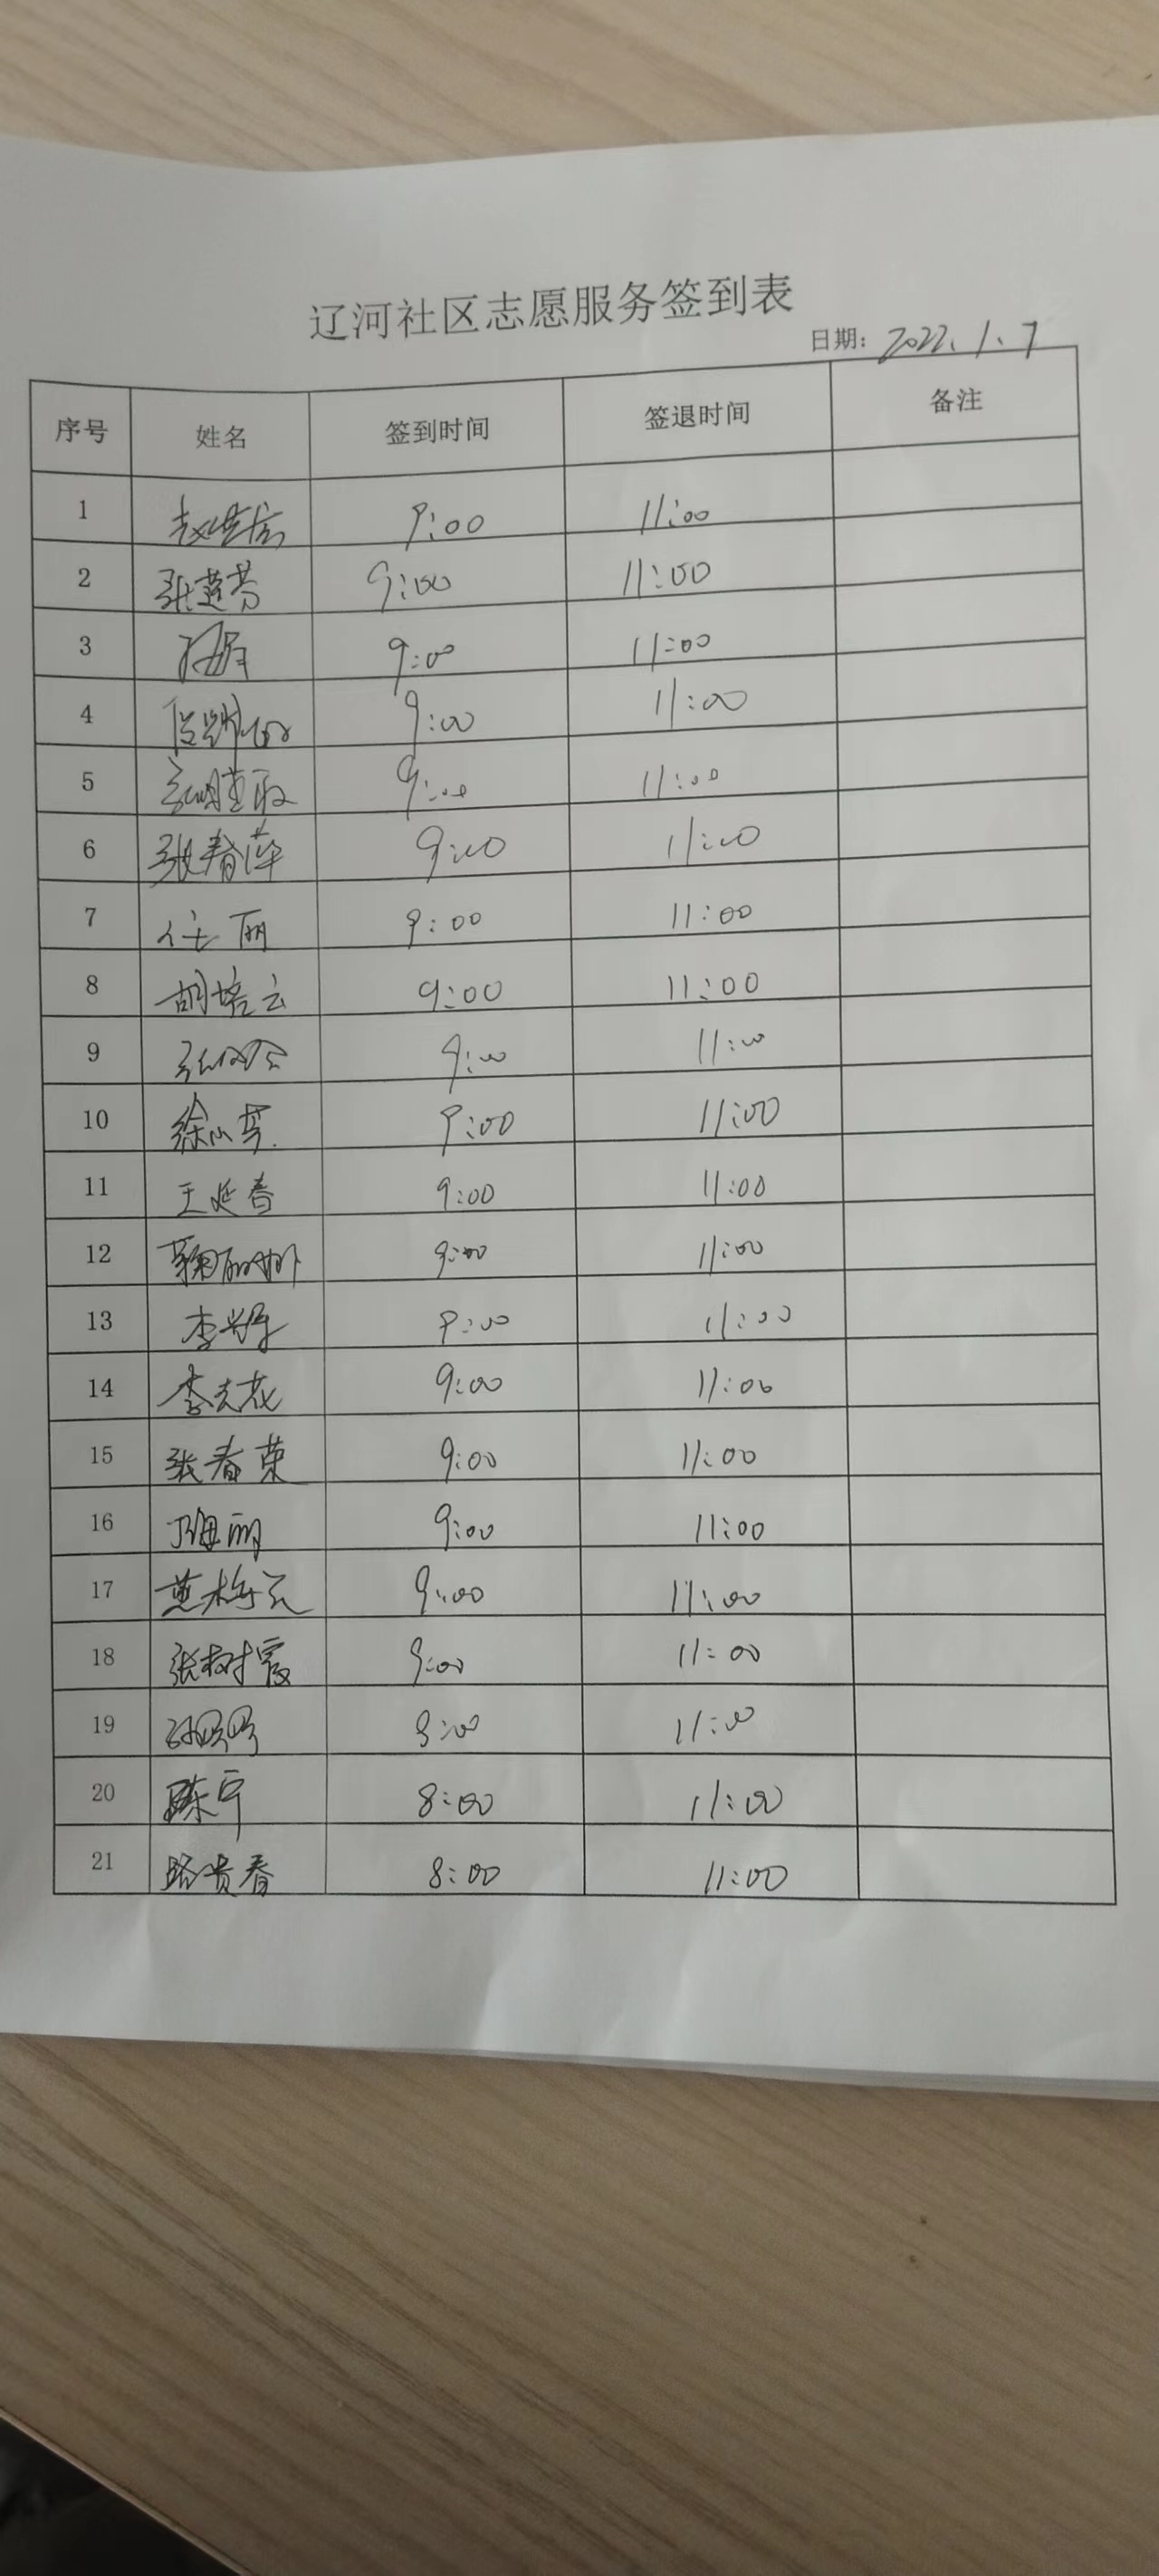 辽河社区志愿服务签到表
日期: 2022.1.7
序号 姓名 签到时间 签退时间 备注
1 9:00 11:00
2 张莲芬 9:00 11:00
3 9:00 11:00
4 9:00 11:00
5 9:00 11:00
6 张春萍 9:00 11:00
7 任丽 9:00 11:00
8 胡培云 9:00 11:00
9 9:00 11:00
10 9:00 11:00
11 王延春 9:00 11:00
12 9:00 11:00
13 9:00 11:00
14 李志花 9:00 11:00
15 张春荣 9:00 11:00
16 9:00 11:00
17 9:00 11:00
18 张树霞 9:00 11:00
19 11:00
20 8:00 11:00
21 路贵春 8:00 11:00